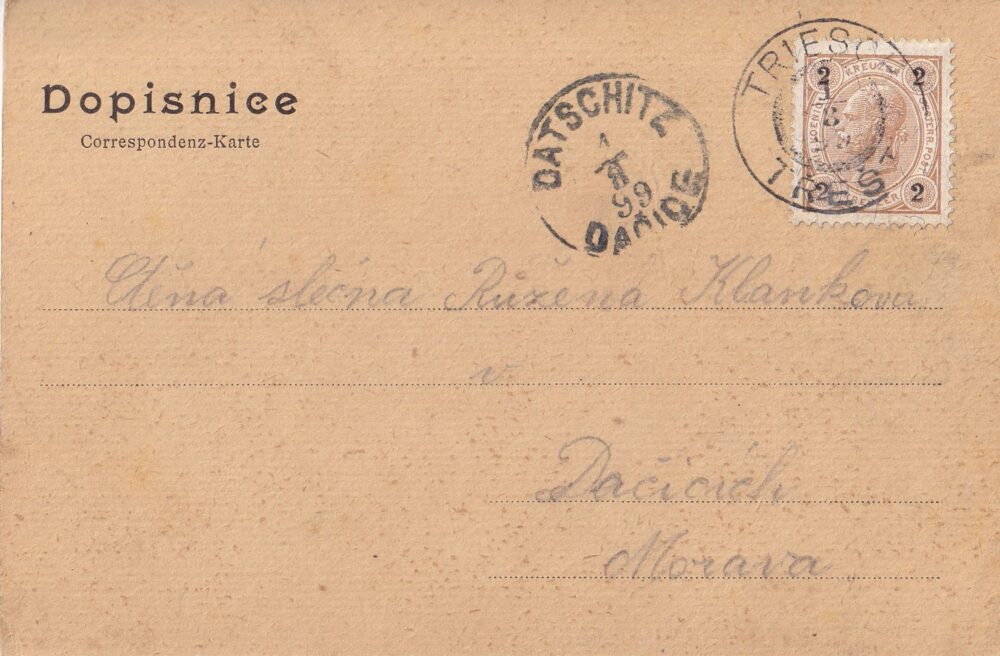 Dopisnice
Correspondenz-Karte
DATSCHITZ
99
DAČICE
TRIESCH
TŘEŠŤ
2 KREUZER 2
2 2
Ctěná slečna Růžena Klankova
v
Dačicích
Morava